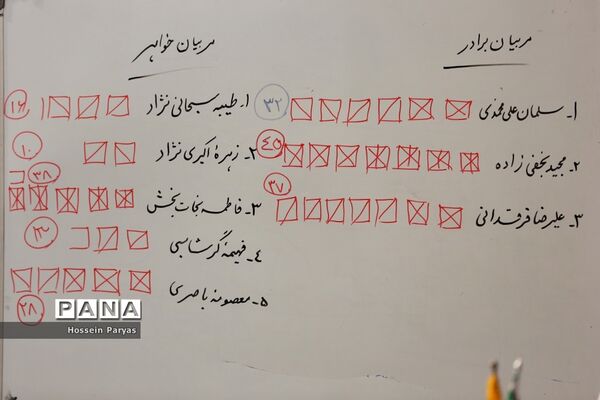 مربیان برادر
۱- سلمان علی محمدی ۳۲
۲- مجید نجفی زاده ۴۵
۳- علیرضا فرقدانی ۳۷
مربیان خواهر
۱- طیبه سبحانی نژاد ۱۶
۲- زهره اکبری نژاد ۱۰
۳- فاطمه نجات بخش ۳۸
۴- فهیمه گرشاسبی ۱۳
۵- معصومه باصری ۲۸
PANA
Hossein Paryas